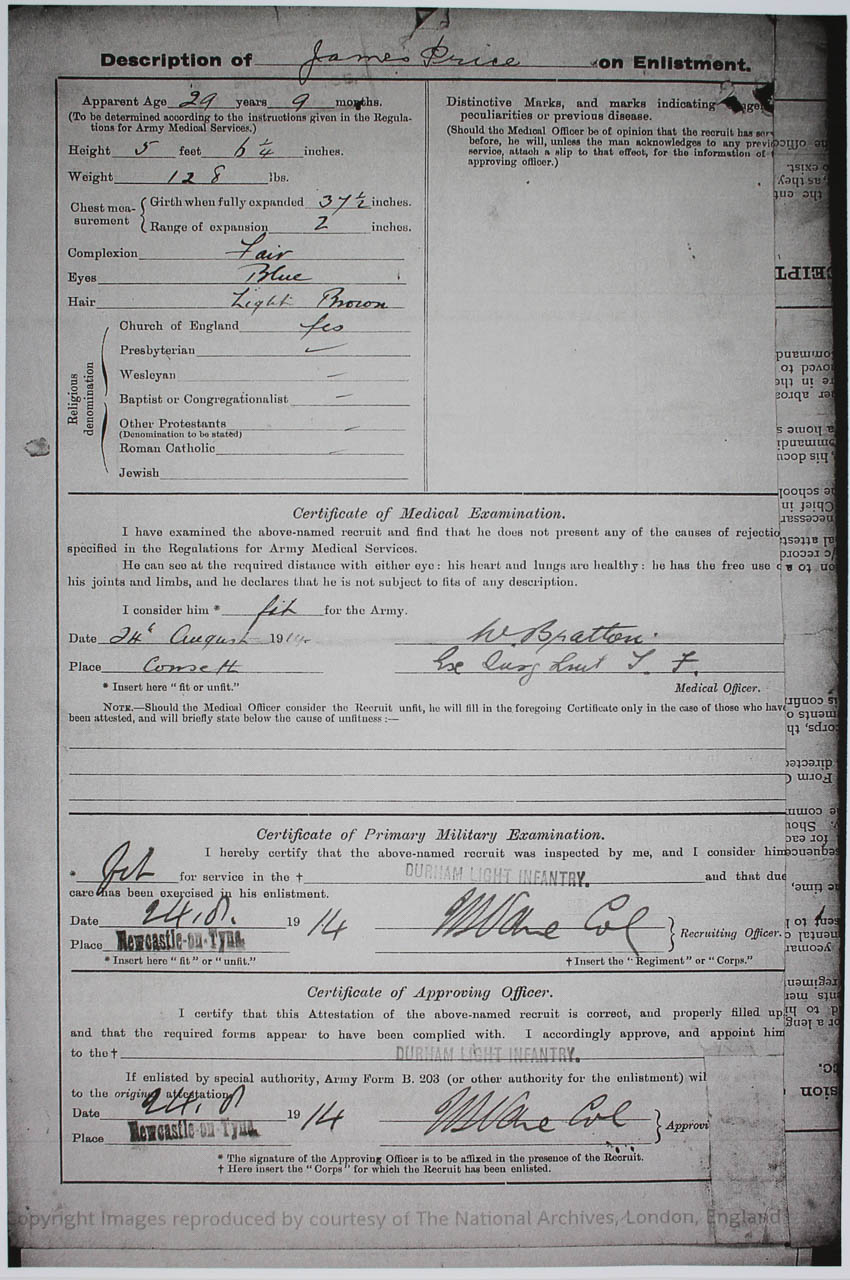 Description of James Price on Enlistment.
Apparent Age 29 years 9 months.
(To be determined according to the instructions given in the Regula-
tions for Army Medical Services.)
Height 5 feet 6 ¼ inches.
Weight 128 lbs.
Chest mea-
surement
Girth when fully expanded 37 ½ inches.
Range of expansion 2 inches.
Complexion Fair
Eyes Blue
Hair Light Brown
Religious
denomination
Church of England Yes
Presbyterian
Wesleyan —
Baptist or Congregationalist —
Other Protestants —
(Denomination to be stated)
Roman Catholic —
Jewish
Distinctive Marks, and marks indicating
peculiarities or previous disease.
(Should the Medical Officer be of opinion that the recruit has
before, he will, unless the man acknowledges to any
service, attach a slip to that effect, for the information of
approving officer.)
Certificate of Medical Examination.
I have examined the above-named recruit and find that he does not present any of the causes of rejectio
specified in the Regulations for Army Medical Services.
He can see at the required distance with either eye: his heart and lungs are healthy: he has the free use
his joints and limbs, and he declares that he is not subject to fits of any description.
I consider him * fit for the Army.
Date 24 August 1914.
Place Consett
W. Bratton.
Medical Officer.
* Insert here "fit or unfit."
NOTE.—Should the Medical Officer consider the Recruit unfit, he will fill in the foregoing Certificate only in the case of those who hav
been attested, and will briefly state below the cause of unfitness :—
Certificate of Primary Military Examination.
I hereby certify that the above-named recruit was inspected by me, and I consider him
* fit for service in the † DURHAM LIGHT INFANTRY. and that due
care has been exercised in his enlistment.
Date 24.8. 1914
Place Newcastle-on-Tyne
Col
Recruiting Officer.
* Insert here "fit" or "unfit."
† Insert the "Regiment" or "Corps."
Certificate of Approving Officer.
I certify that this Attestation of the above-named recruit is correct, and properly filled up
and that the required forms appear to have been complied with. I accordingly approve, and appoint him
to the † DURHAM LIGHT INFANTRY.
If enlisted by special authority, Army Form B. 203 (or other authority for the enlistment) wil
to the original attestation
Date 24.8 1914
Place Newcastle-on-Tyne
Col
Approvi
* The signature of the Approving Officer is to be affixed in the presence of the Recruit.
† Here insert the "Corps" for which the Recruit has been enlisted.
opyright Images reproduced by courtesy of The National Archives, London, England